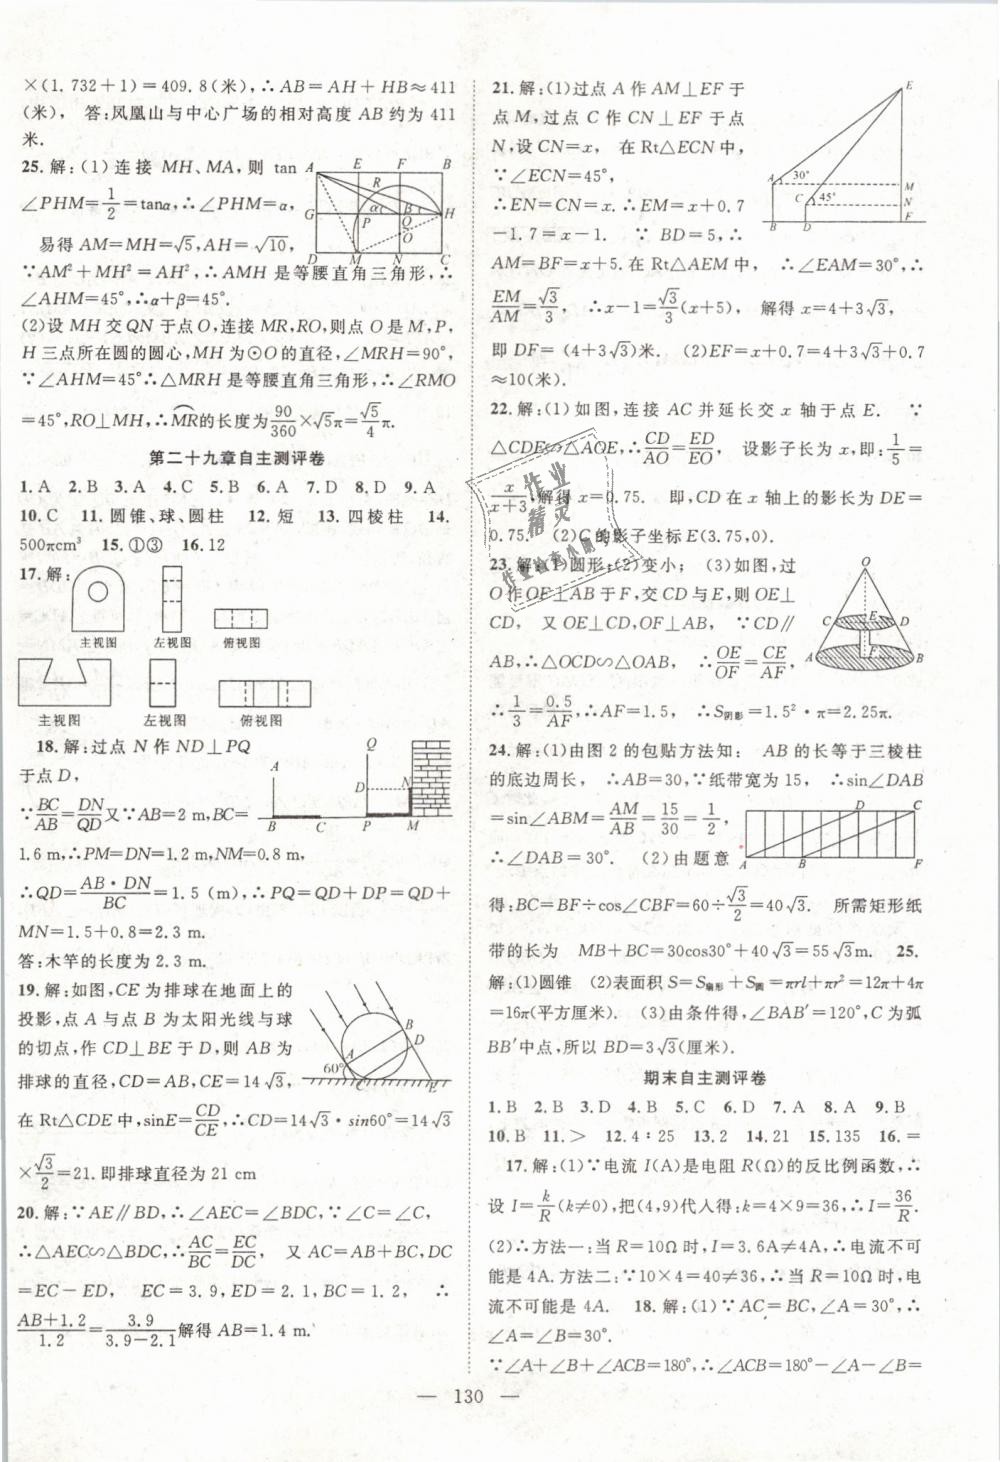 ×(1.732+1)=409.8(米),∴AB=AH+HB≈411
(米)， 答:凤凰山与中心广场的相对高度 AB 约为 411
米.
25.解:(1)连接 MH、MA,则 tan
∠PHM=1/2=tanα,∴∠PHM=α,
易得 AM=MH=√5,AH=√10,
∵AM²+MH²=AH²,∴AMH 是等腰直角三角形,∴
∠AHM=45°,∴α+β=45°.
(2)设 MH 交 QN 于点 O,连接 MR,RO,则点 O 是 M,P,
H 三点所在圆的圆心,MH 为⊙O 的直径,∠MRH=90°,
∵∠AHM=45°∴△MRH 是等腰直角三角形,∴∠RMO
=45°,RO⊥MH,∴MR的长度为90/360×√5π=√5/4π.
A E F B
R
G P α β Q H
O
D M N C
第二十九章自主测评卷
1.A 2.B 3.A 4.C 5.B 6.A 7.D 8.D 9.A
10.C 11.圆锥、球、圆柱 12.短 13.四棱柱 14.
500πcm³ 15.①③ 16.12
17.解:
主视图 左视图 俯视图
主视图 左视图 俯视图
18.解:过点 N 作 ND⊥PQ
于点 D,
∵BC/AB=DN/QD又∵AB=2 m,BC=
1.6 m,∴PM=DN=1.2 m,NM=0.8 m,
∴QD=AB·DN/BC=1.5 (m),∴PQ=QD+DP=QD+
MN=1.5+0.8=2.3 m.
答:木竿的长度为 2.3 m.
A Q
D N
B C P M
19.解:如图,CE 为排球在地面上的
投影,点 A 与点 B 为太阳光线与球
的切点,作 CD⊥BE 于 D,则 AB 为
排球的直径,CD=AB,CE=14√3,
在 Rt△CDE 中,sinE=CD/CE,∴CD=14√3·sin60°=14√3
×√3/2=21.即排球直径为 21 cm
B
D
A
60°
C E
20.解:∵AE∥BD,∴∠AEC=∠BDC,∵∠C=∠C,
∴△AEC∽△BDC,∴AC/BC=EC/DC, 又 AC=AB+BC,DC
=EC-ED, EC=3.9,ED=2.1,BC=1.2, ∴
AB+1.2/1.2=3.9/3.9-2.1解得 AB=1.4 m.
21.解:(1)过点 A 作 AM⊥EF 于
点 M,过点 C 作 CN⊥EF 于点
N,设 CN=x, 在 Rt△ECN 中,
∵∠ECN=45°,
∴EN=CN=x.∴EM=x+0.7
-1.7=x-1. ∵ BD=5,∴
AM=BF=x+5.在 Rt△AEM 中, ∴∠EAM=30°,∴
EM/AM=√3/3, ∴x-1=√3/3(x+5), 解得 x=4+3√3,
即 DF=(4+3√3)米. (2)EF=x+0.7=4+3√3+0.7
≈10(米).
E
A 30° M
C 45° N
B D F
22.解:(1)如图,连接 AC 并延长交 x 轴于点 E. ∵
△CDE∽△AOE,∴CD/AO=ED/EO, 设影子长为 x,即:1/5=
x/x+3,解得 x=0.75. 即,CD 在 x 轴上的影长为 DE=
0.75. (2)C 的影子坐标 E(3.75,0).
23.解:(1)圆形;(2)变小; (3)如图,过
O 作 OE⊥AB 于 F,交 CD 与 E,则 OE⊥
CD, 又 OE⊥CD,OF⊥AB, ∵CD∥
AB,∴△OCD∽△OAB, ∴OE/OF=CE/AF,
∴1/3=0.5/AF,∴AF=1.5, ∴S阴影=1.5²·π=2.25π.
O
C E D
A F B
24.解:(1)由图 2 的包贴方法知: AB 的长等于三棱柱
的底边周长, ∴AB=30,∵纸带宽为 15, ∴sin∠DAB
=sin∠ABM=AM/AB=15/30=1/2,
∴∠DAB=30°. (2)由题意
得:BC=BF÷cos∠CBF=60÷√3/2=40√3. 所需矩形纸
带的长为 MB+BC=30cos30°+40√3=55√3m. 25.
D C
A B F
解:(1)圆锥 (2)表面积 S=S扇形+S圆=πrl+πr²=12π+4π
=16π(平方厘米). (3)由条件得,∠BAB′=120°,C 为弧
BB′中点,所以 BD=3√3(厘米).
期末自主测评卷
1.B 2.B 3.D 4.B 5.C 6.D 7.A 8.A 9.B
10.B 11.> 12.4∶25 13.2 14.21 15.135 16.=
17.解:(1)∵电流 I(A)是电阻 R(Ω)的反比例函数,∴
设 I=k/R(k≠0),把(4,9)代人得:k=4×9=36,∴I=36/R.
(2)∴方法一:当 R=10Ω 时,I=3.6A≠4A,∴电流不可
能是 4A.方法二:∵10×4=40≠36,∴当 R=10Ω 时,电
流不可能是 4A. 18.解:(1)∵AC=BC,∠A=30°,∴
∠A=∠B=30°.
∵∠A+∠B+∠ACB=180°,∴∠ACB=180°-∠A-∠B=
作业
精灵
— 130 —